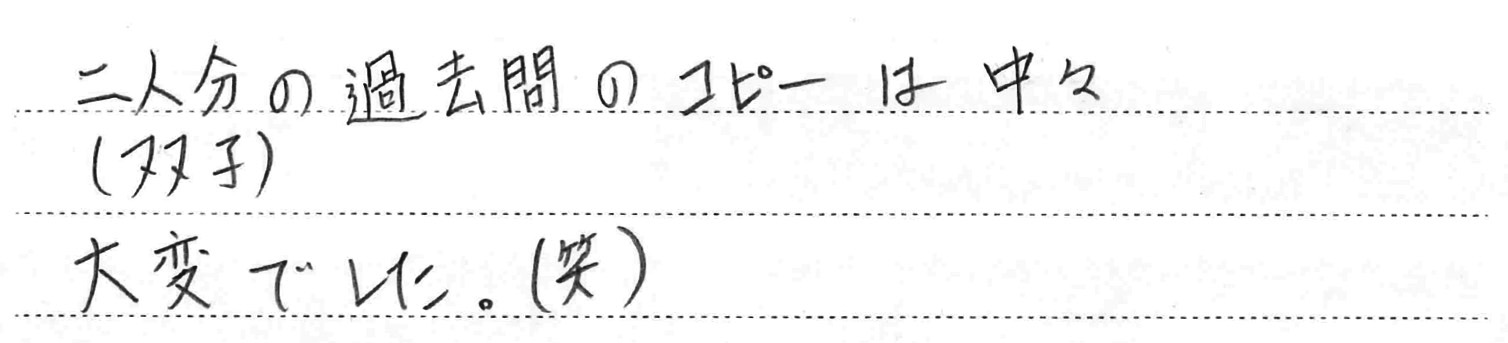 二人分の過去問のコピーは中々
(双子)
大変でした。(笑)